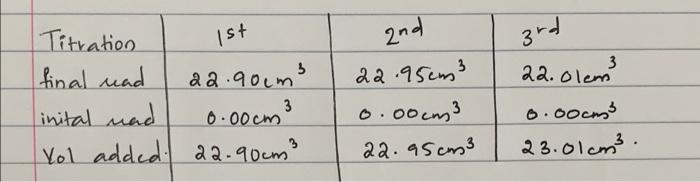 Titration 1st 2nd 3rd
final read 22.90cm³ 22.95cm³ 22.01cm³
inital read 0.00cm³ 0.00cm³ 0.00cm³
Vol added. 22.90cm³ 22.95cm³ 23.01cm³.